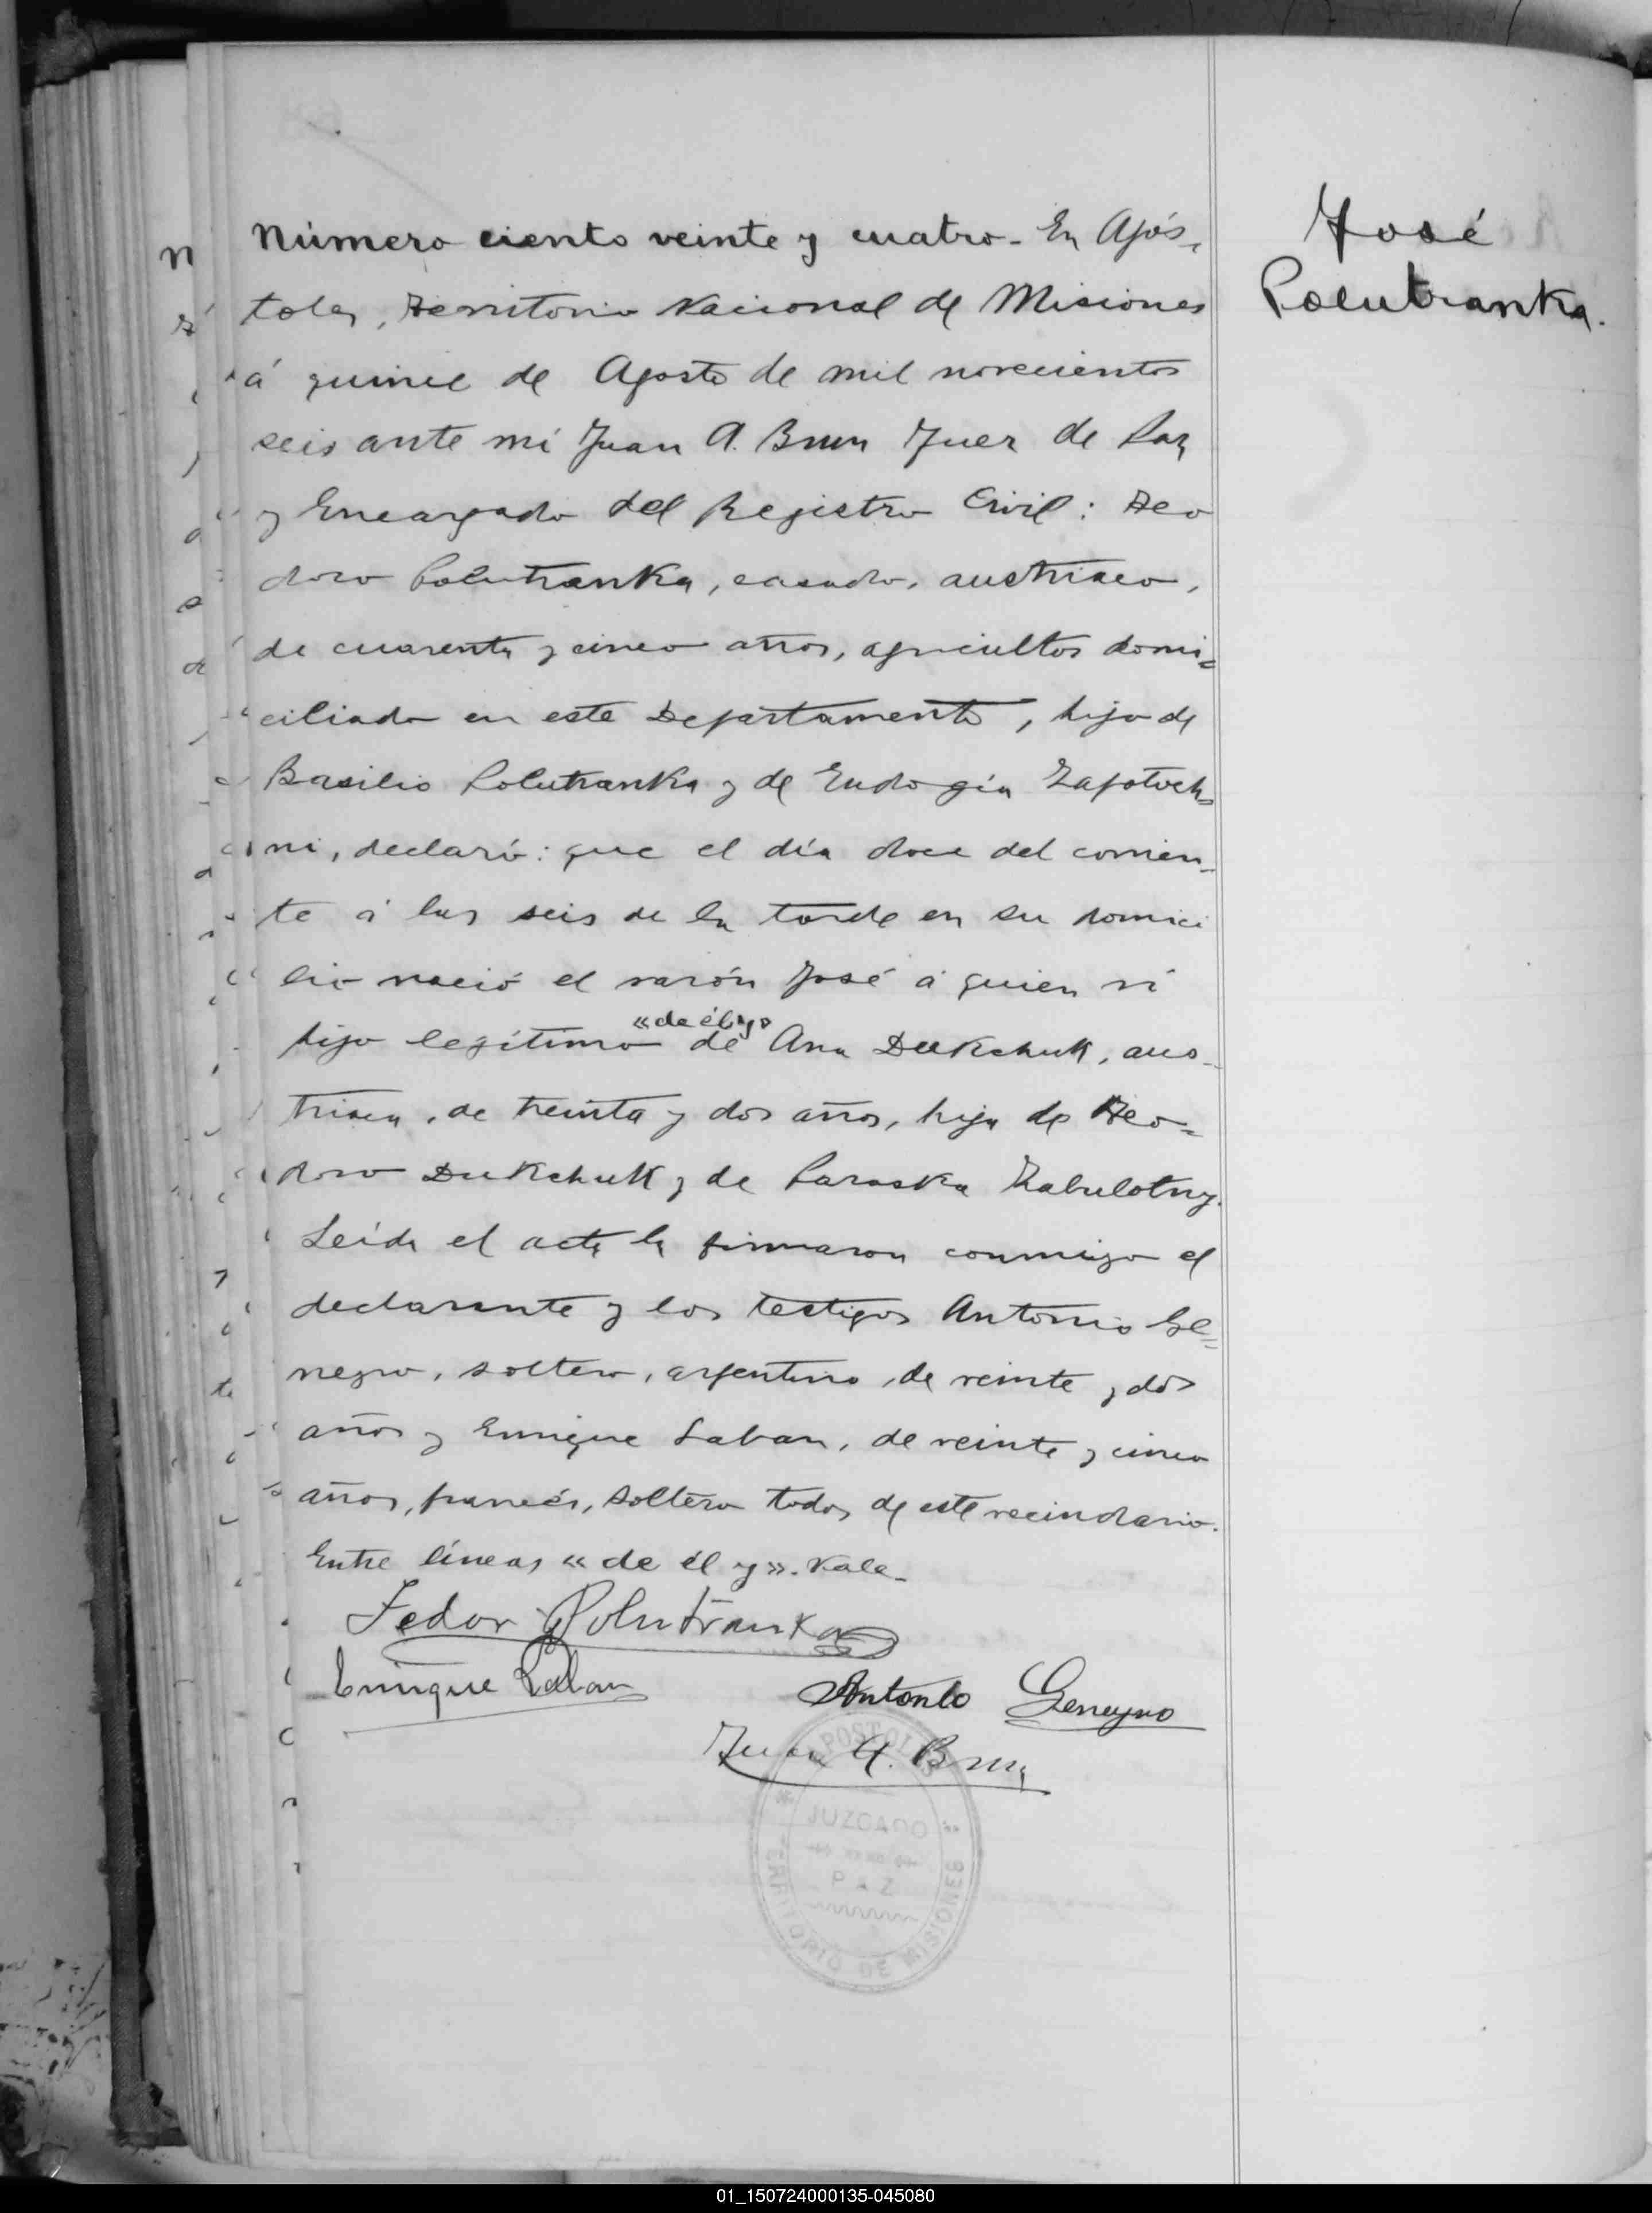 Número ciento veinte y cuatro. En Após-
toles, Territorio Nacional de Misiones
á quince de Agosto de mil novecientos
seis ante mí Juan A. Brun Juez de Paz
y Encargado del Registro Civil: Teo
doro Polutranka, casado, austriaco,
de cuarenta y cinco años, agricultor domi-
ciliado en este Departamento, hijo de
Basilio Polutranka y de Eudogia Zapotoch=
ni, declaró: que el día doce del corrien-
te á las seis de la tarde en su domici
lio nació el varón José á quien ví
«de él y»
hijo legítimo de Ana Dukchuk, aus-
triaca, de treinta y dos años, hija de Teo=
doro Dukchuk y de Paraska Zabulotny.
Leída el acta la firmaron conmigo el
declarante y los testigos Antonio Ge=
negro, soltero, argentino, de veinte y dos
años y Enrique Laban, de veinte y cinco
años, francés, soltero todos de este vecindario.
Entre líneas «de él y». Vale-
José
Polutranka.
Fedor Polutranka
Enrique Laban
Antonio Genegro
Juan A. Brun
APOSTOLES
JUZGADO
PAZ
TERRITORIO DE MISIONES
01_150724000135-045080